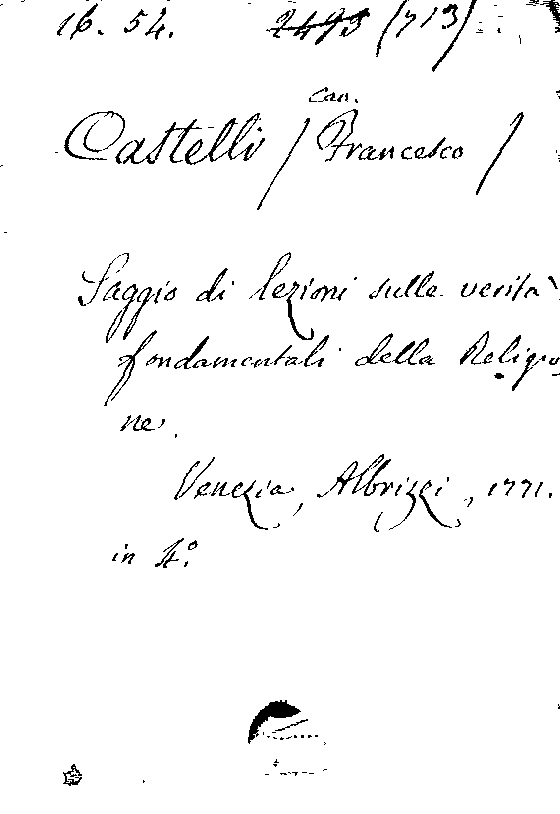 16. 54. 2493 (713)
Can.
Castelli / Francesco /
Saggio di lezioni sulle verità
fondamentali della Religio
ne.
Venezia, Albrizzi, 1771.
in 4.°